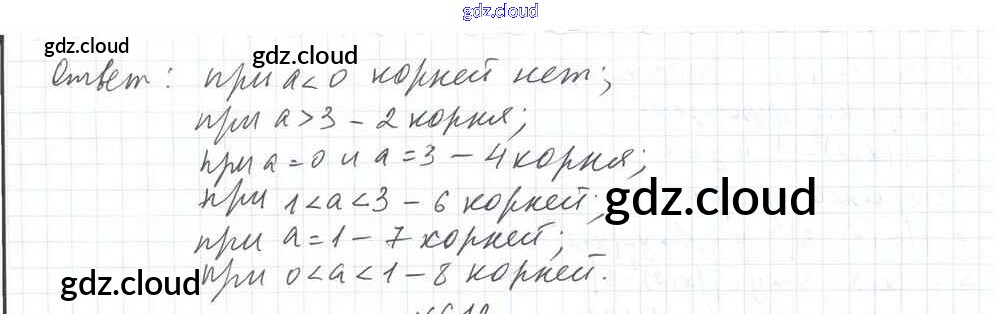 gdz.cloud
gdz.cloud
gdz.cloud
Ответ: при a<0 корней нет;
при a>3 – 2 корня;
при a=0 и a=3 – 4 корня;
при 1<a<3 – 6 корней;
gdz.cloud
при a=1 – 7 корней;
gdz.cloud
при 0<a<1 – 8 корней.